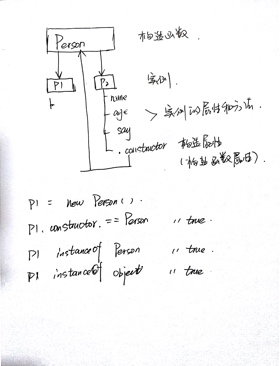 Person 构造函数.
P1 P2 实例.
name
age > 实例的属性和方法.
say
. constructor 构造属性
(构造函数属性).
P1 = new Person().
P1. constructor. == Person // true.
P1 instanceof Person // true.
P1 instanceof object // true.